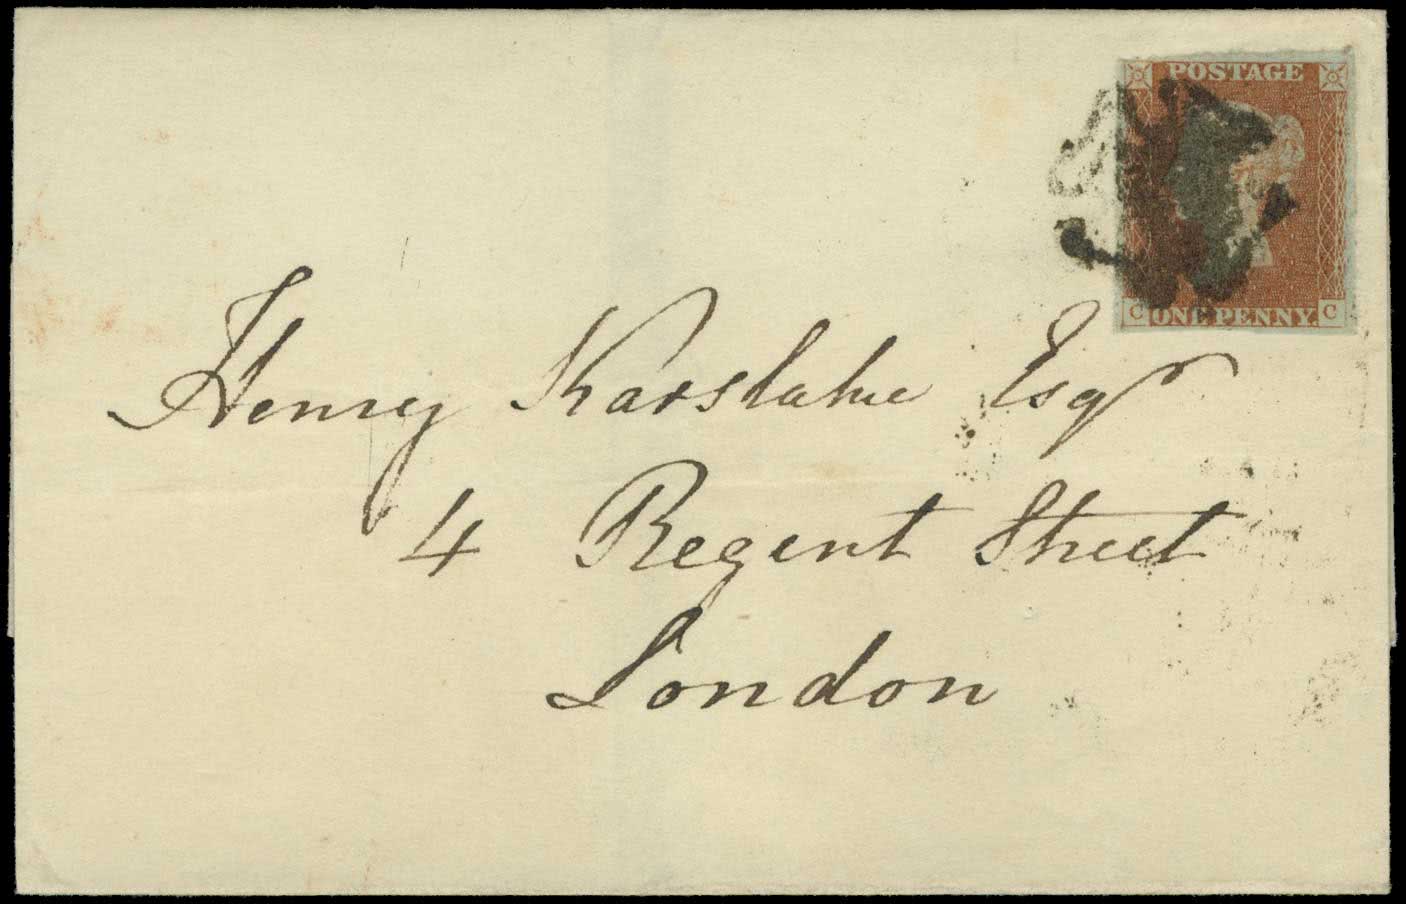 POSTAGE
C ONE PENNY. C
Henry Karslake Esqr
4 Regent Street
London